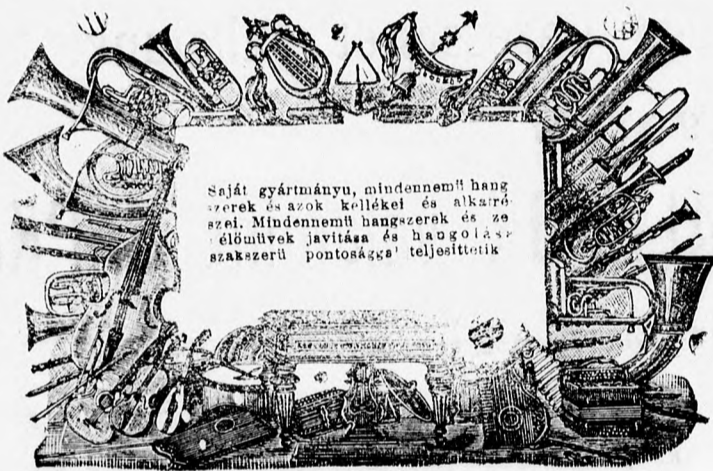 Saját gyártmányu, mindennemű hang
szerek és azok kellékei és alkatré
szei. Mindennemü hangszerek és ze
élőmüvek javitása és hangolása
szakszerü pontosággal teljesittetik